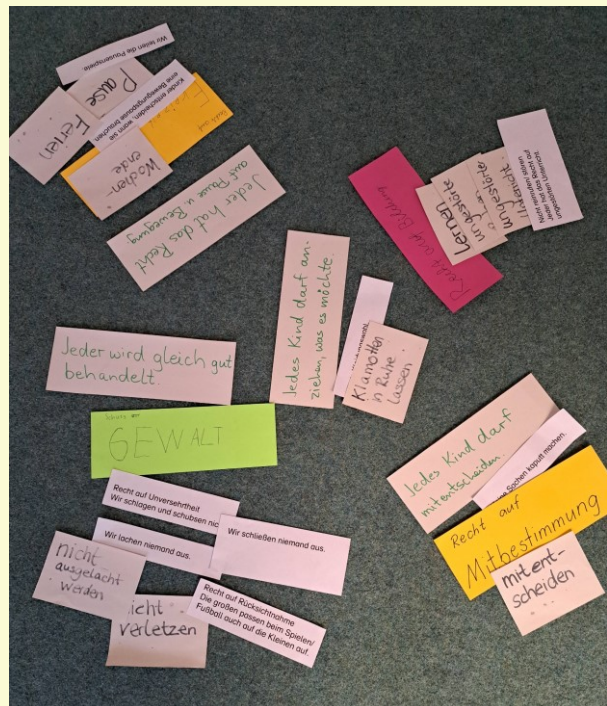 Wir teilen die Pausenspiele.
Pause
Ferien
Kinder entscheiden, wann sie
eine Bewegungspause brauchen.
Wochen
ende
Jeder hat das Recht
auf Pause u. Bewegung
Nicht reinreden/ stören
Jeder hat das Recht auf
ungestörten Unterricht
ungestörter
Unterricht
lernen
ungestörte
Recht auf Bildung
Jedes Kind darf an-
ziehen, was es möchte.
Klamotten
in Ruhe
lassen
Jeder wird gleich gut
behandelt.
GEWALT
Recht auf Unversehrtheit
Wir schlagen und schubsen nic
Wir lachen niemand aus.
Wir schließen niemand aus.
nicht
ausgelacht
werden
icht
verletzen
Recht auf Rücksichtnahme
Die großen passen beim Spielen/
Fußball auch auf die Kleinen auf
Jedes Kind darf
mitentscheiden.
Sachen kaputt machen.
Recht auf
Mitbestimmung
mitent-
scheiden